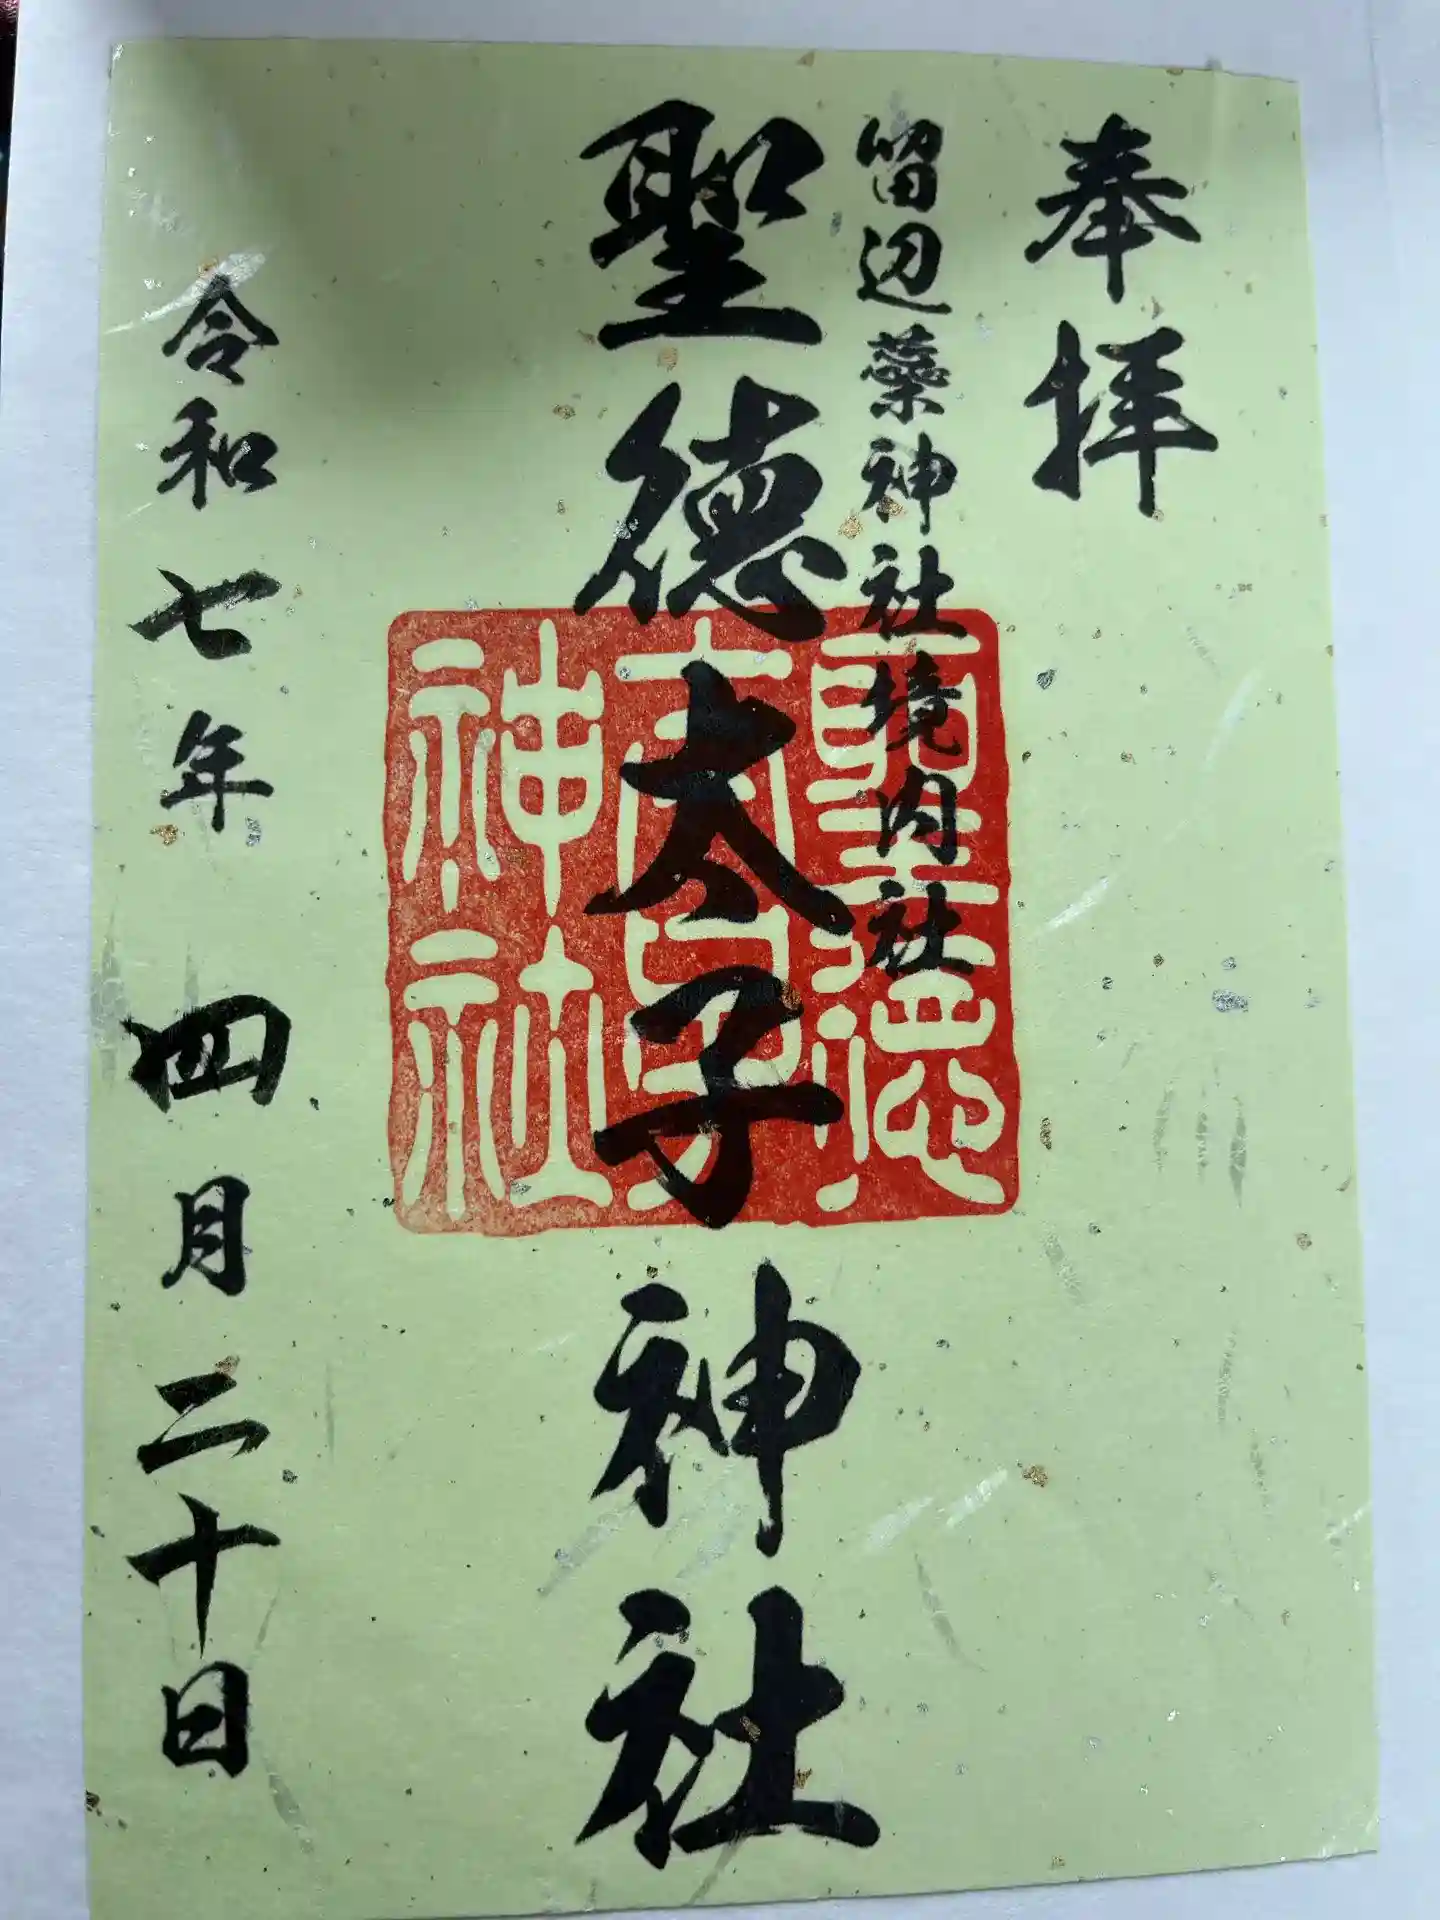 奉拝
留辺蘂神社境内社
聖徳太子神社
聖徳
太子
神社
令和七年四月二十日